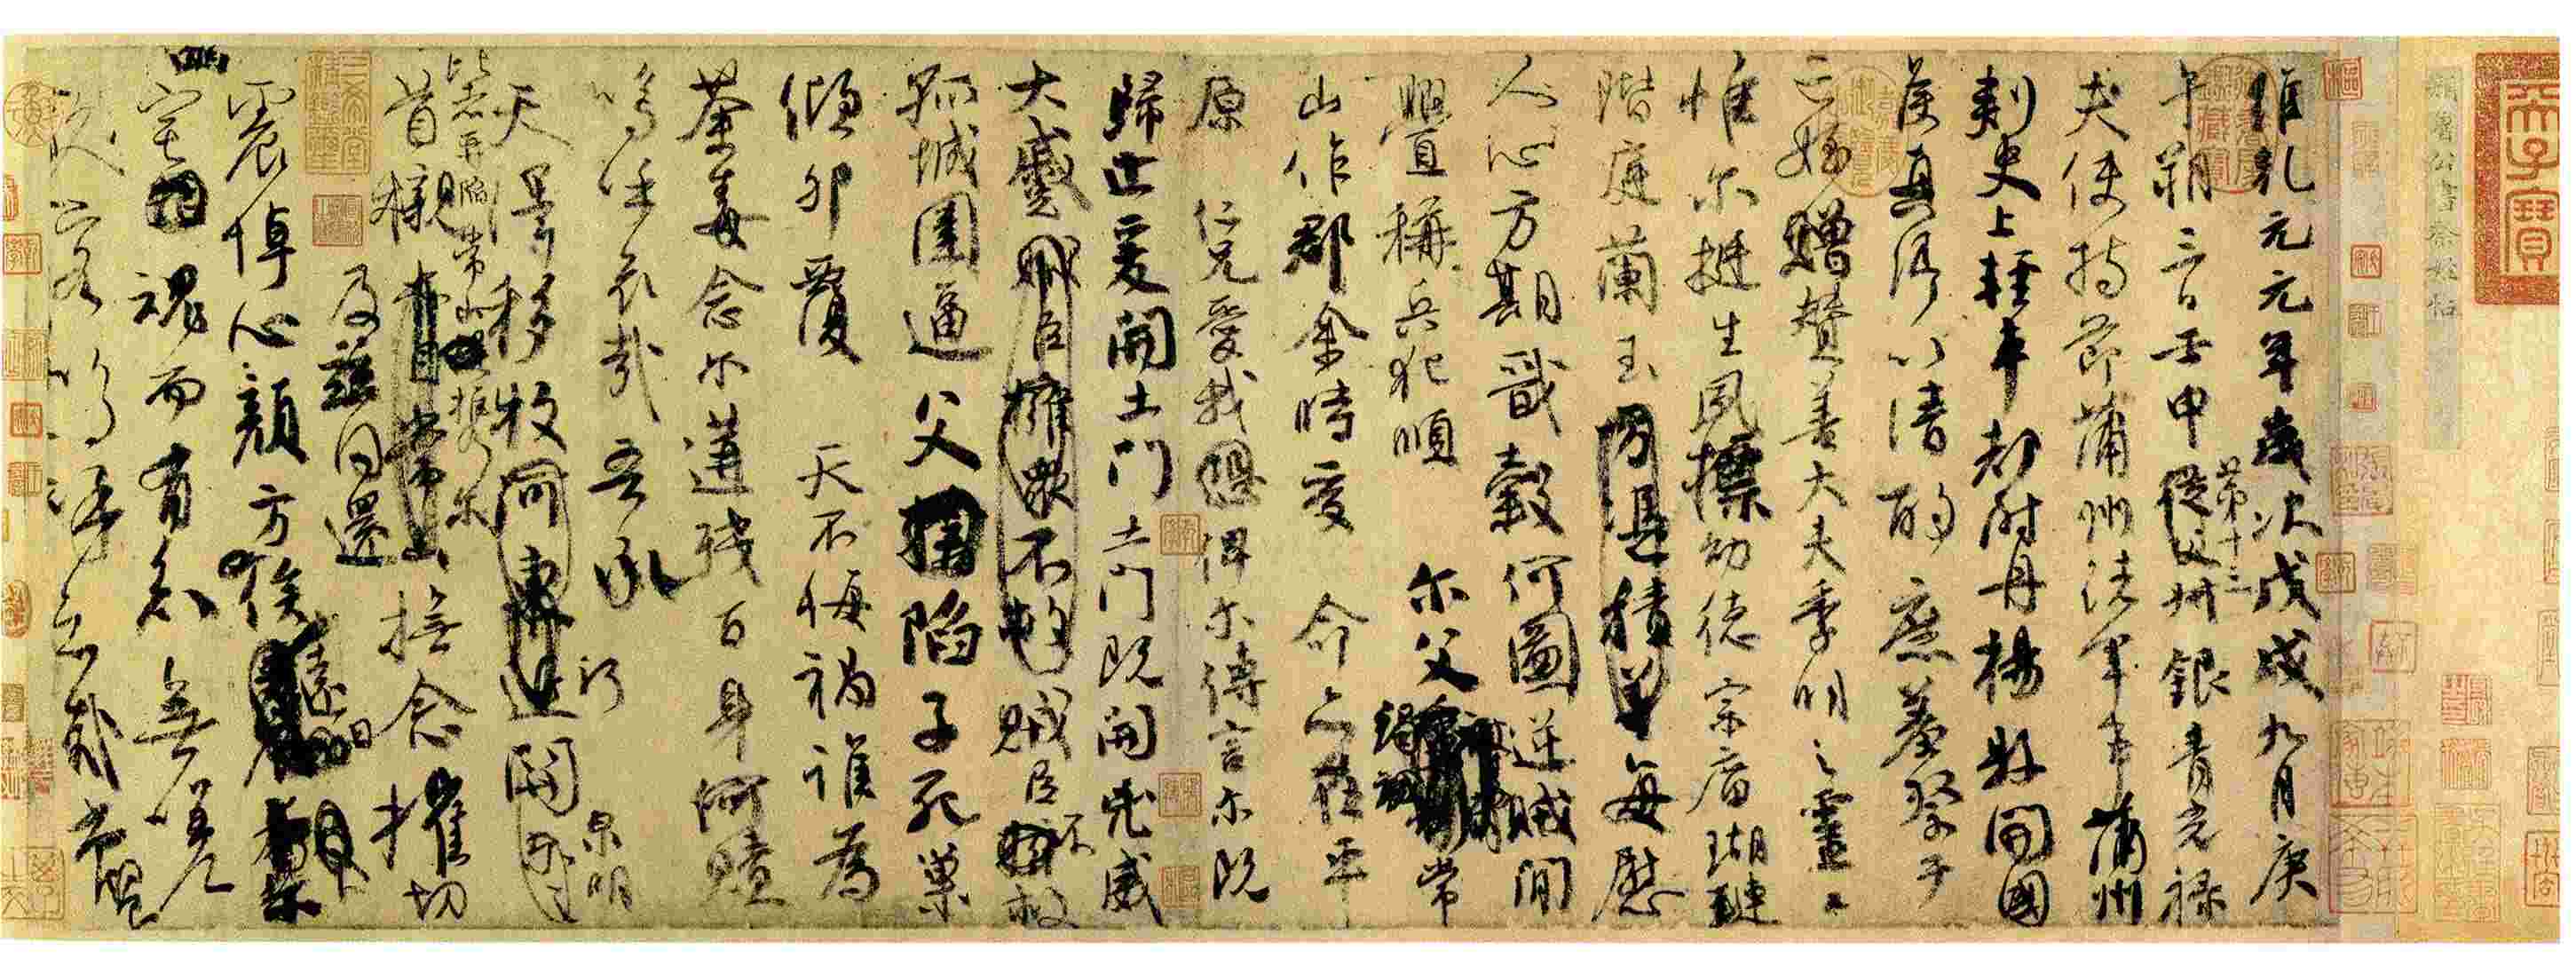 天子寶
顏魯公書祭姪帖
維乾元元年歲次戊戌九月庚
午朔三日壬申第十三從父叔銀青光祿
夫使持節蒲州諸軍事蒲州
刺史上輕車都尉丹楊縣開國
侯真卿以清酌庶羞祭于
亡姪贈贊善大夫季明之靈曰
惟尔挺生夙標幼德宗廟瑚璉
階庭蘭玉方憑積善每慰
人心方期戩穀何圖逆賊閒
釁稱兵犯順尔父竭誠常
山作郡余時受命亦在平
原仁兄愛我俾尔傳言尔既
歸止爰開土門土門既開兇威
大蹙賊臣擁衆不救賊臣不救
孤城圍逼父陷子死巢
傾卵覆天不悔禍誰為
荼毒念尔遘殘百身何贖
嗚呼哀哉吾承
天澤移牧河關泉明
比者再陷常山攜尔
首櫬及茲同還撫念摧切
震悼心顏方俟遠日
卜尔幽宅魂而有知無嗟
久客嗚呼哀哉尚饗